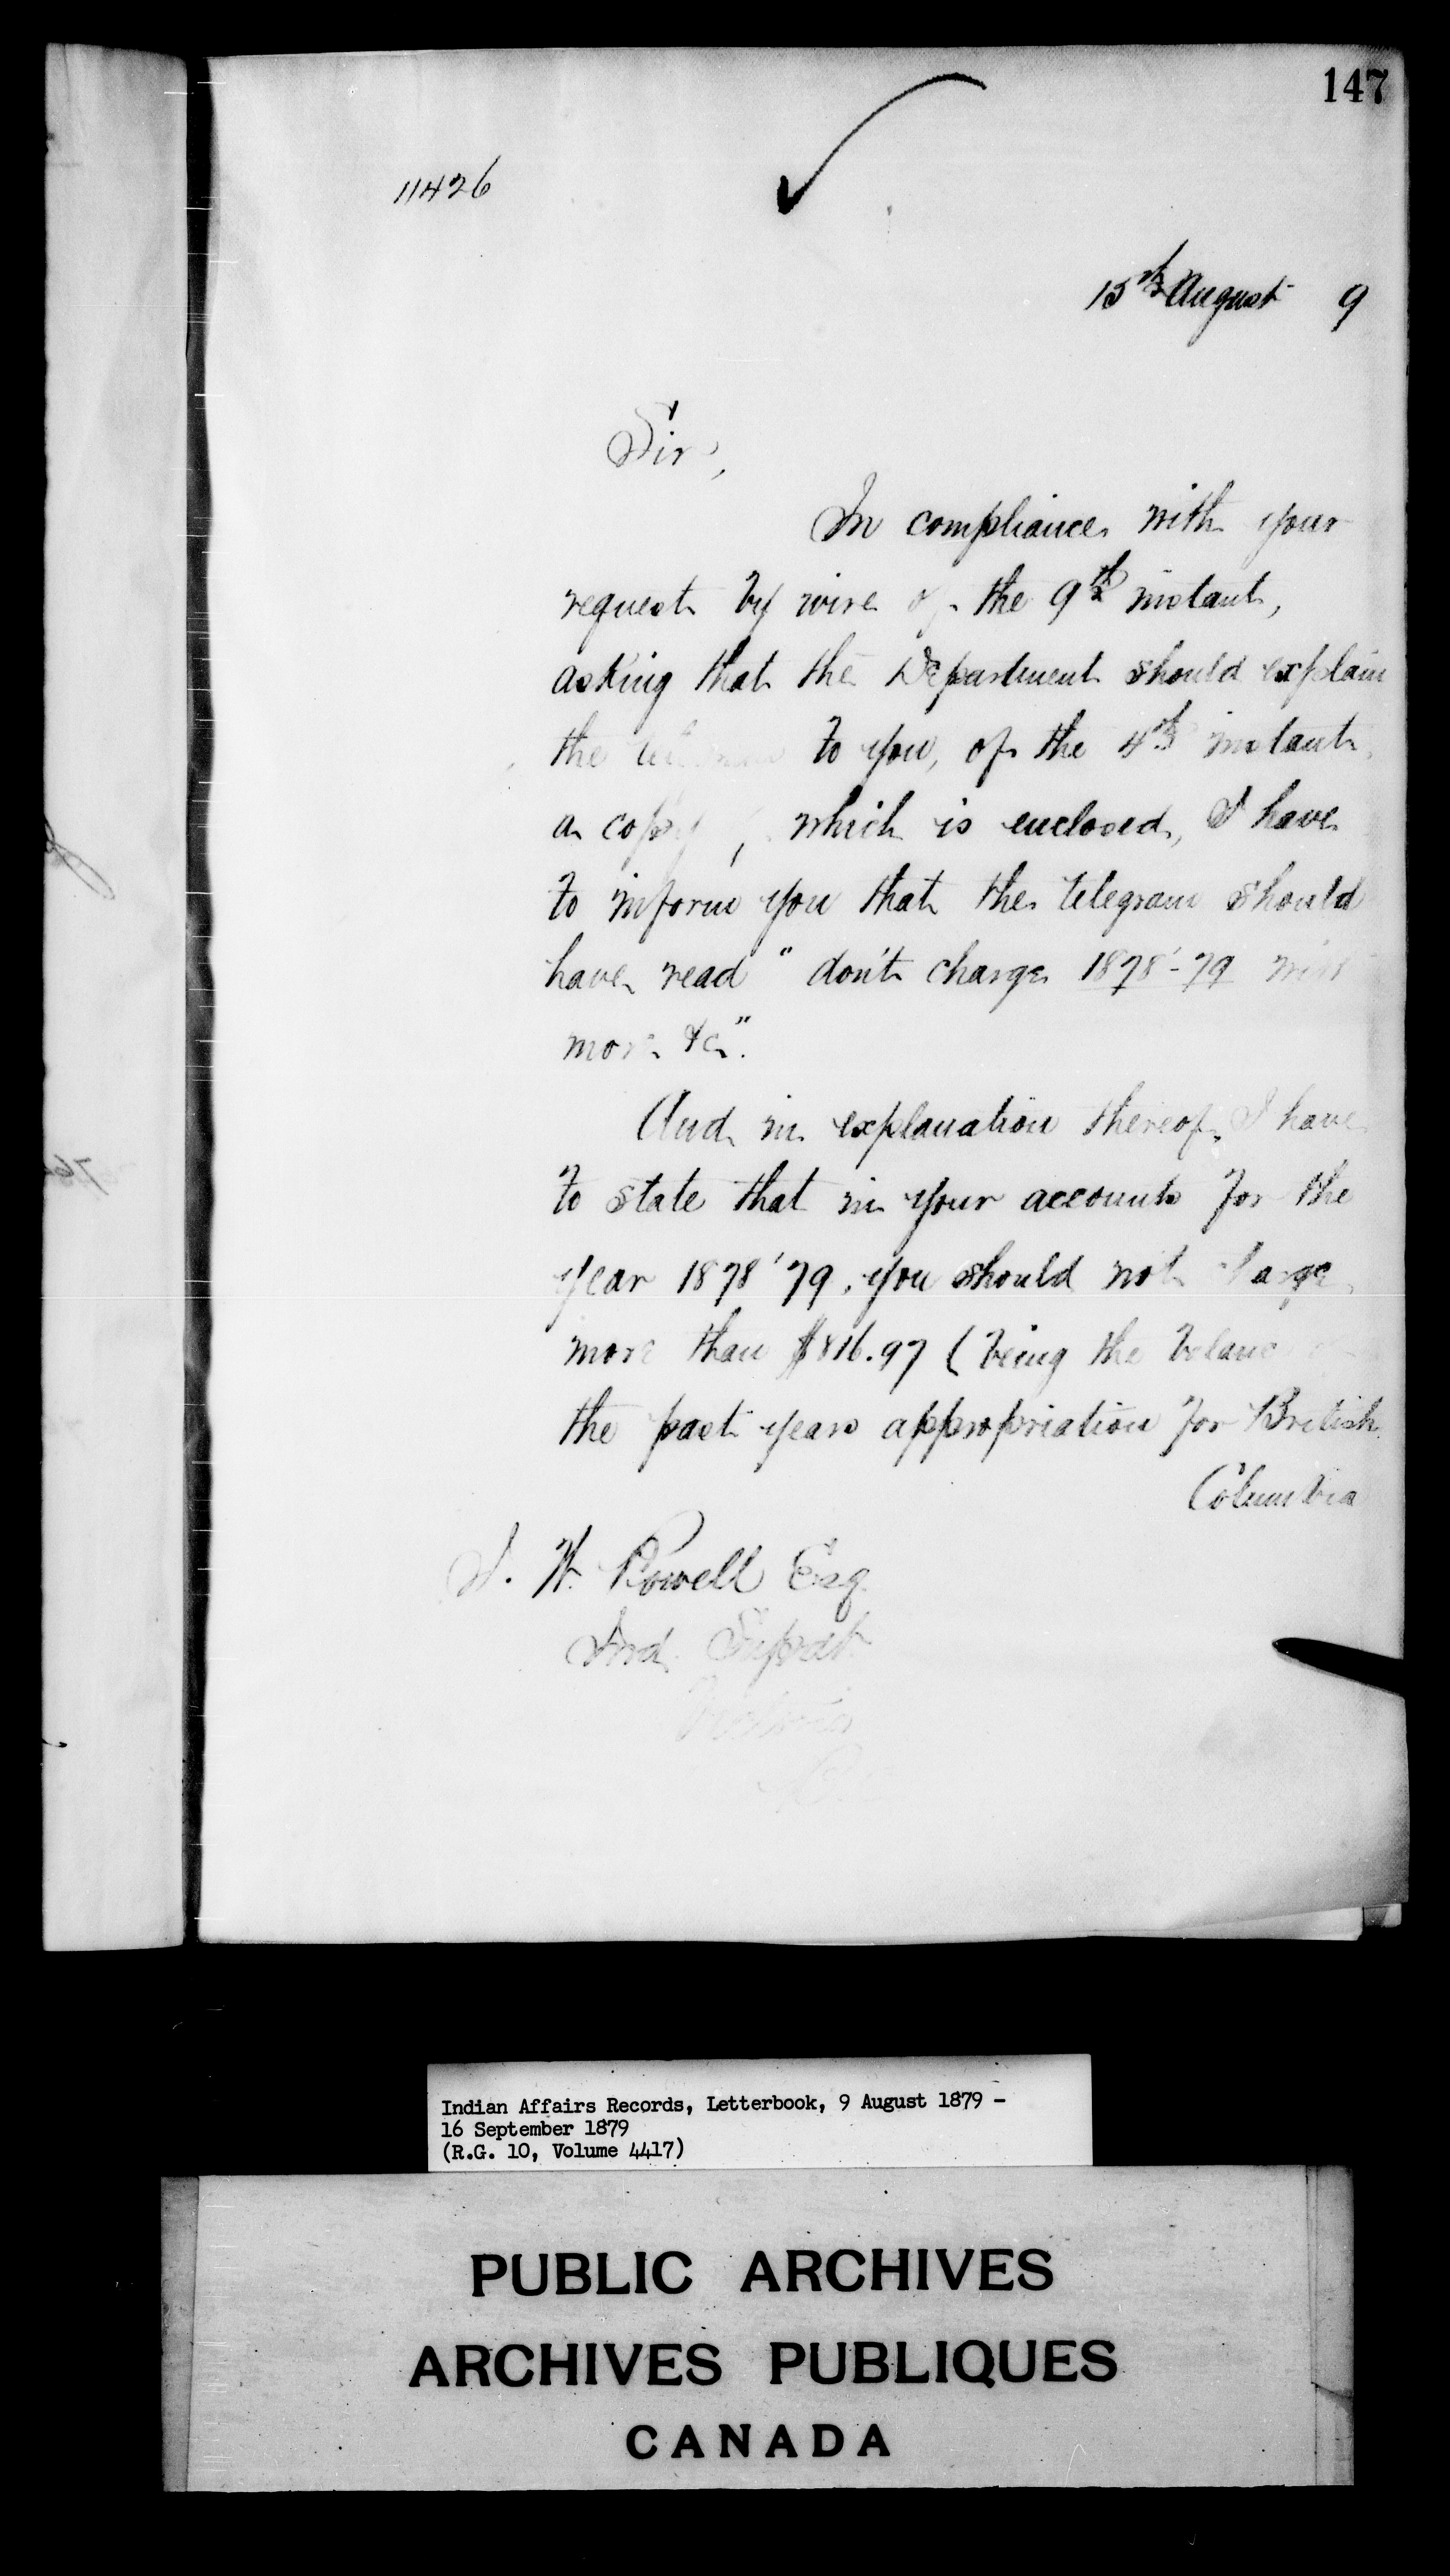 147
11426
15th August 9
Sir,
In compliance with your
request by wire of the 9th instant,
asking that the Department should explain
the to you, of the 4th instant,
a copy, which is enclosed, I have
to inform you that the telegram should
have read "don't charge 1878-79
more &c".
And in explanation thereof, I have
to state that in your accounts for the
year 1878'79, you should not charge
more than $816.97 (being the balance
the past years appropriation for British
Columbia
I. W. Powell Esq.
Ind. Supdt.
Victoria
76
Indian Affairs Records, Letterbook, 9 August 1879 -
16 September 1879
(R.G. 10, Volume 4417)
PUBLIC ARCHIVES
ARCHIVES PUBLIQUES
CANADA